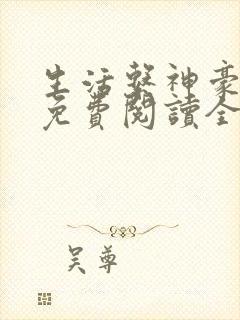 生活系神豪
免費閱讀全
吳尊